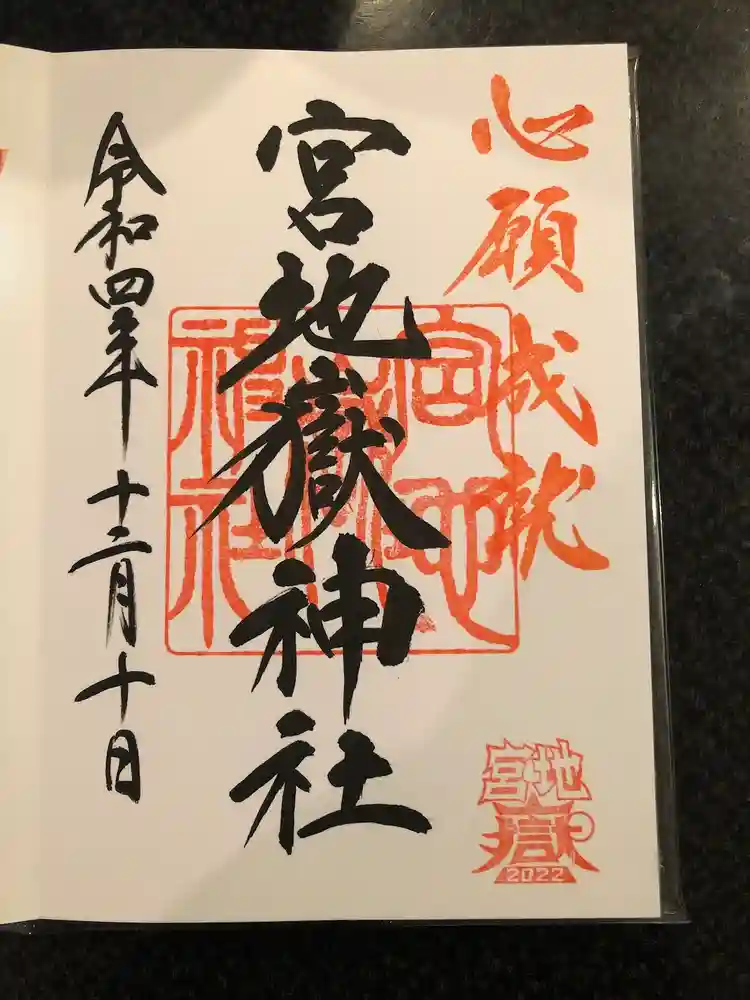 心願成就
宮地嶽神社
令和四年十二月十日
宮地嶽神社
宮地
嶽
2022